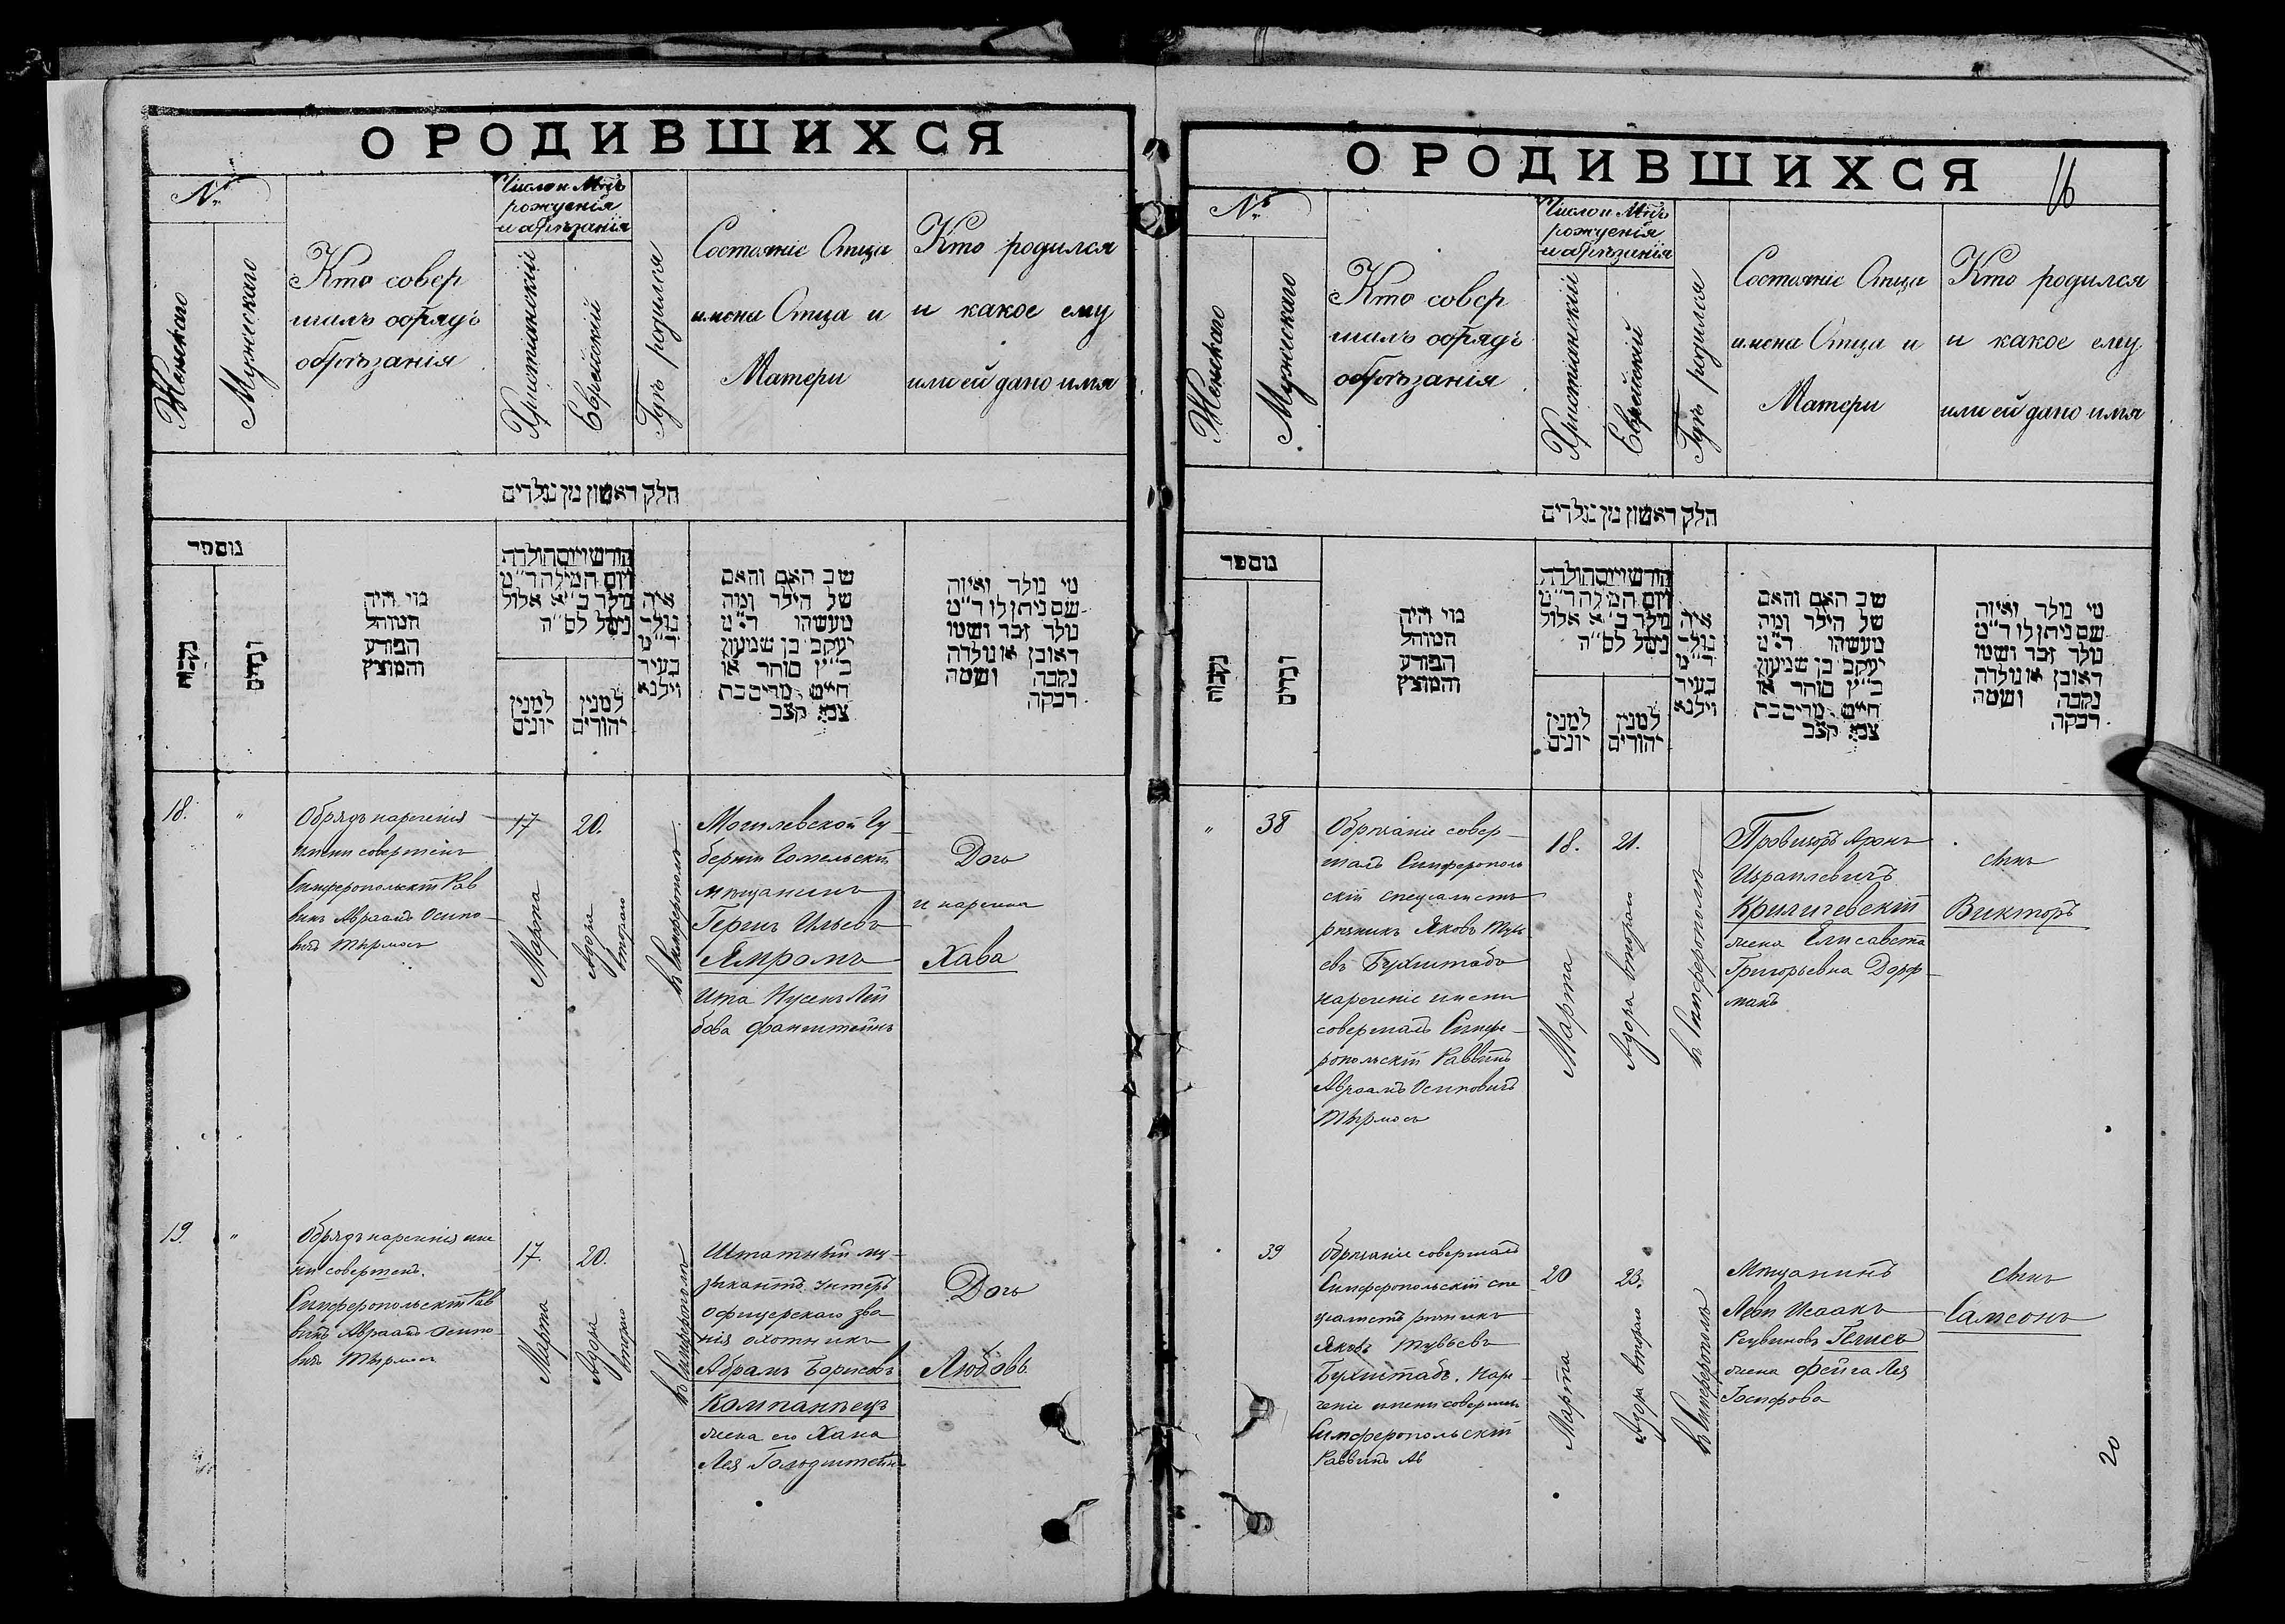 О РОДИВШИХСЯ
№
Женскаго
Мужескаго
Кто совер
шалъ обрядъ
обрѣзанія
Число и Мѣс.
рожденія
и обрѣзанія
Христіанскій
Еврейскій
Гдѣ родился
Состояніе Отца
имена Отца и
Матери
Кто родился
и какое ему
или ей дано имя
חלק ראשון מן נולדים
מספר
נקבות
זכרים
מי היה
המוהל
הפורע
והמוצץ
חודש ויום הולדת
ויום המילה ד״מ
נולד ב״א אלול
נימל לס״ה
למנין
יונים
למנין
יהודים
איה
נולד
ד״מ
בעיר
וילנא
שם האב והאם
של הילד ומה
מעשהו ד״מ
יעקב בן שמעון
כ״ץ סוחר או
חייט מרים בת
צבי קצב
מי נולד ואיזה
שם ניתן לו ד״מ
נולד זכר ושמו
ראובן או נולדה
נקבה ושמה
רבקה
18.
"
Обрядъ нареченія
имени совершенъ
Симферопольскій Рав
винъ Авраамъ Осипо-
вичъ Тырмосъ
17
Марта
20.
Адора
втораго
въ Симферополѣ
Могилевской Гу-
берніи Гомельскій
мѣщанинъ
Герцъ Ильевъ
Ямромъ
Ита Нусенъ Лей
бова Франштейнъ
Дочь
и наречена
Хава
19.
"
Обрядъ нареченія име
ни совершенъ.
Симферопольскій Рав
винъ Авраамъ Осипо-
вичъ Тырмосъ
17.
Марта
20.
Адора
втораго
въ Симферополѣ
Штатный му-
зыкантъ унтеръ
офицерскаго зва
нія охотникъ
Абрамъ Борисовъ
Компанѣецъ
жена его Хана
Лея Голодштейнъ
Дочь
Любовь
О РОДИВШИХСЯ
16
№
Женскаго
Мужескаго
Кто совер
шалъ обрядъ
обрѣзанія
Число и Мѣс.
рожденія
и обрѣзанія
Христіанскій
Еврейскій
Гдѣ родился
Состояніе Отца
имена Отца и
Матери
Кто родился
и какое ему
или ей дано имя
חלק ראשון מן נולדים
מספר
נקבות
זכרים
מי היה
המוהל
הפורע
והמוצץ
חודש ויום הולדת
ויום המילה ד״מ
נולד ב״א אלול
נימל לס״ה
למנין
יונים
למנין
יהודים
איה
נולד
ד״מ
בעיר
וילנא
שם האב והאם
של הילד ומה
מעשהו ד״מ
יעקב בן שמעון
כ״ץ סוחר או
חייט מרים בת
צבי קצב
מי נולד ואיזה
שם ניתן לו ד״מ
נולד זכר ושמו
ראובן או נולדה
נקבה ושמה
רבקה
"
38
Обрѣзаніе совер-
шалъ Симферополь
скій спеціалистъ
рѣзникъ Яковъ Тувь
евъ Бухштабъ
нареченіе имени
совершалъ Симфе-
ропольскій Раввинъ
Авраамъ Осиповичъ
Тырмосъ
18.
Марта
21.
Адора втораго
въ Симферополѣ
Провизоръ Аронъ
Израилевичъ
Криличевскій
жена Елисавета
Григорьевна Дорф-
манъ
сынъ
Викторъ
39
Обрѣзаніе совершалъ
Симферопольскій спе
ціалистъ рѣзникъ
Яковъ Тувьевъ
Бухштабъ. Наре-
ченіе имени соверш.
Симферопольскій
Раввинъ Ав
20
Марта
23.
Адора втораго
въ Симферополѣ
Мѣщанинъ
Лейп Исаакъ
Реувиновъ Гелисъ
жена Фейга Лея
Іосифова
сынъ
Самсонъ
20